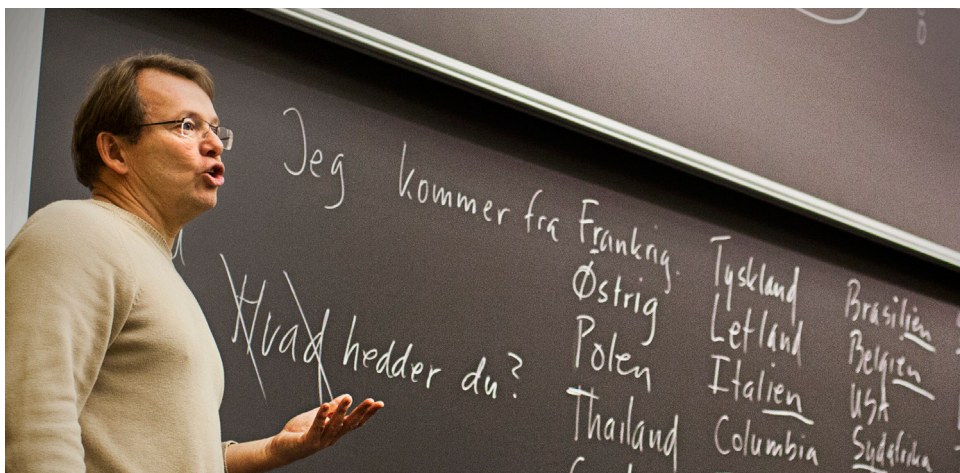 Jeg kommer fra Frankrig.
Østrig
Polen
Thailand
Tyskland
Letland
Italien
Columbia
Brasilien
Belgien
USA
Sydafrika
Hvad hedder du?